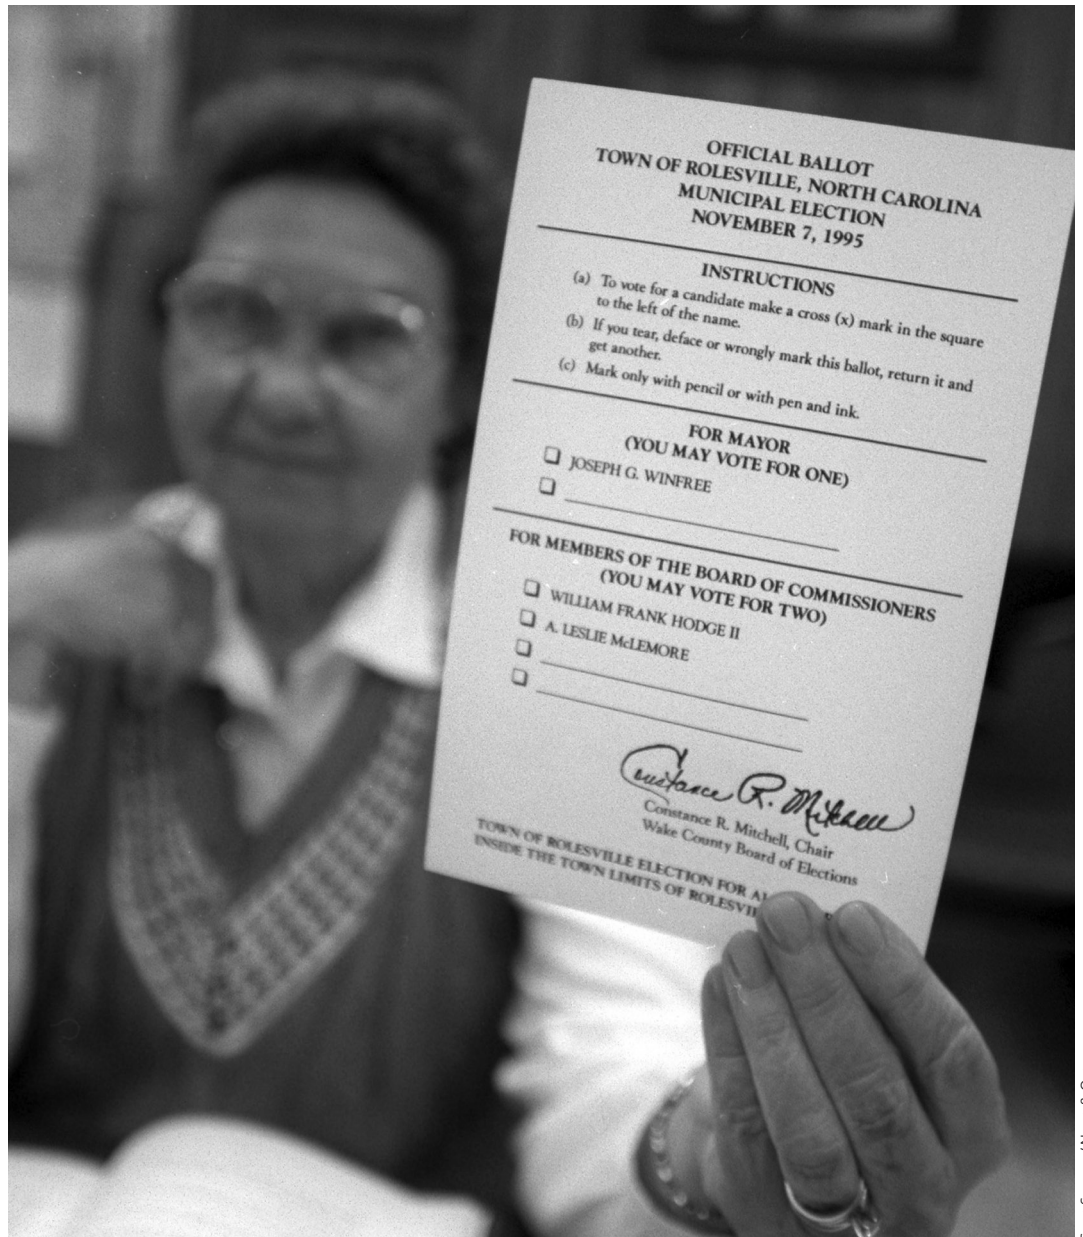 OFFICIAL BALLOT
TOWN OF ROLESVILLE, NORTH CAROLINA
MUNICIPAL ELECTION
NOVEMBER 7, 1995
INSTRUCTIONS
(a) To vote for a candidate make a cross (x) mark in the square
to the left of the name.
(b) If you tear, deface or wrongly mark this ballot, return it and
get another.
(c) Mark only with pencil or with pen and ink.
FOR MAYOR
(YOU MAY VOTE FOR ONE)
JOSEPH G. WINFREE
FOR MEMBERS OF THE BOARD OF COMMISSIONERS
(YOU MAY VOTE FOR TWO)
WILLIAM FRANK HODGE II
A. LESLIE McLEMORE
Constance R. Mitchell
Constance R. Mitchell, Chair
Wake County Board of Elections
TOWN OF ROLESVILLE ELECTION FOR
INSIDE THE TOWN LIMITS OF